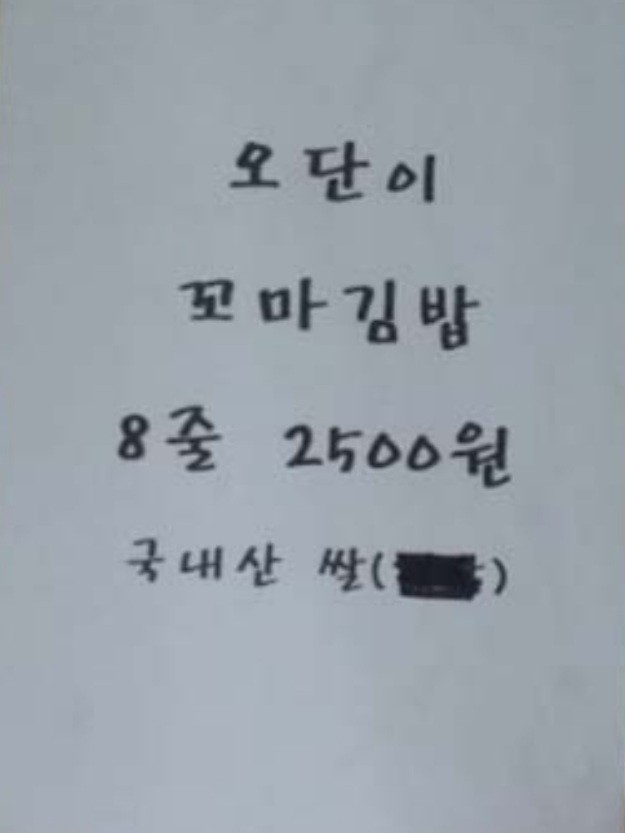 오단이
꼬마김밥
8줄 2500원
국내산 쌀( )